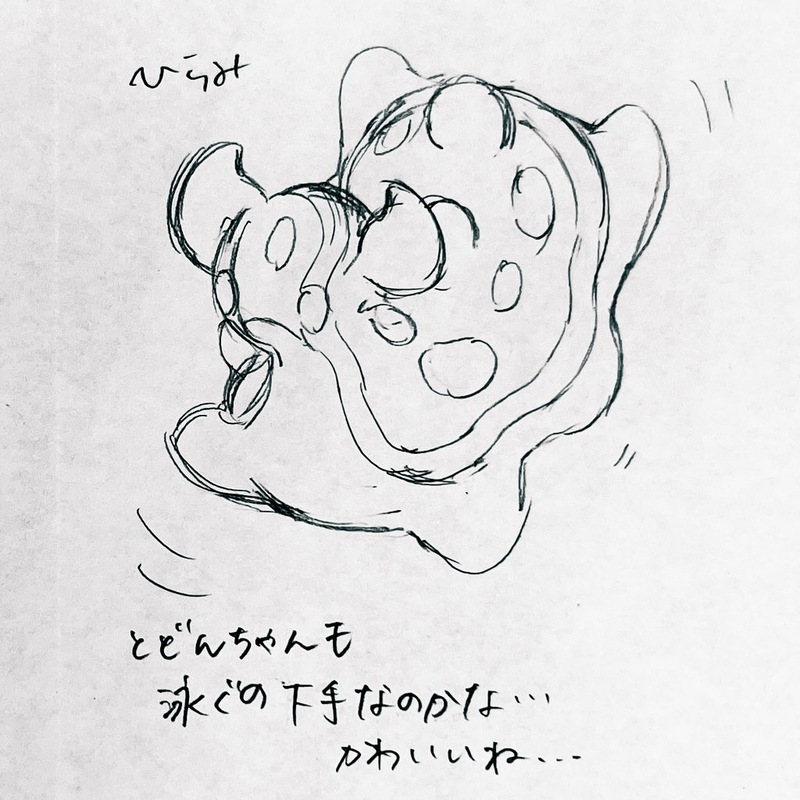 ひらみ
とどんちゃんも
泳ぐの下手なのかな…
かわいいね…